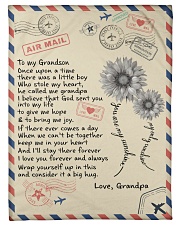 AIR MAIL
To my Grandson
Once upon a time
there was a little boy
Who stole my heart,
he called me grandpa
I believe that God sent you
into my life
to give me hope
& to bring me joy.
If there ever comes a day
When we can't be together
keep me in your heart
And I'll stay there forever
I love you forever and always
Wrap yourself up in this
and consider it a big hug.
you are my sunshine
my only sunshine
Love, Grandpa